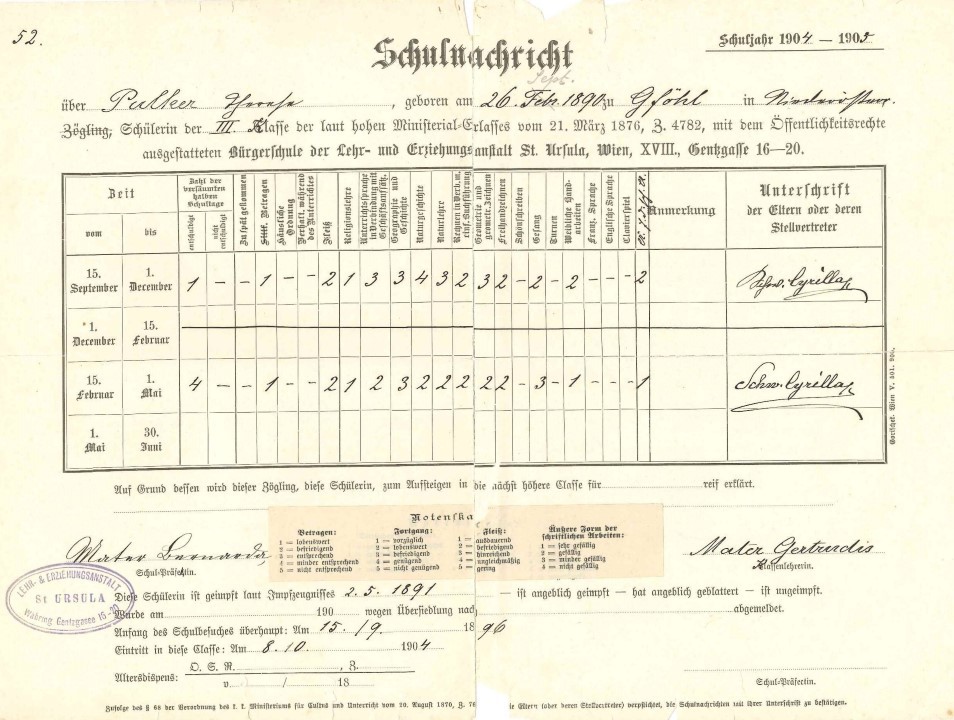 52.
Schuljahr 1904 — 1905
Schulnachricht
Sept.
über Pulker Therese, geboren am 26. Febr. 1890 zu Gföhl in Niederösterr.
Zögling, Schülerin der III. Klasse der laut hohen Ministerial-Erlasses vom 21. März 1876, Z. 4782, mit dem Öffentlichkeitsrechte
ausgestatteten Bürgerschule der Lehr- und Erziehungsanstalt St. Ursula, Wien, XVIII., Gentzgasse 16—20.
Zeit
vom
bis
Zahl der versäumten halben Schultage
entschuldigt
nicht entschuldigt
Zu spät gekommen
Sittl. Betragen
Häusliche Ordnung
Verhalt. während des Unterrichtes
Fleiß
Religionslehre
Unterrichtssprache in Verbindung mit Geschäftsaufsätz.
Geographie und Geschichte
Naturgeschichte
Naturlehre
Rechnen in Verb. m. einf. Buchführung
Geometrie und geometr. Zeichnen
Freihandzeichnen
Schönschreiben
Gesang
Turnen
Weibliche Handarbeiten
Franz. Sprache
Englische Sprache
Clavierspiel
Anmerkung
Unterschrift
der Eltern oder deren
Stellvertreter
15. September 1. December 1 — — 1 — — 2 1 3 3 4 3 2 3 2 — 2 — 2 — — — 2 Schw. Cyrilla
1. December 15. Februar
15. Februar 1. Mai 4 — — 1 — — 2 1 2 3 2 2 2 2 2 — 3 — 1 — — — 1 Schw. Cyrilla
1. Mai 30. Juni
Auf Grund dessen wird dieser Zögling, diese Schülerin, zum Aufsteigen in die nächst höhere Classe für reif erklärt.
Notenska
Betragen:
1 = lobenswert
2 = befriedigend
3 = entsprechend
4 = minder entsprechend
5 = nicht entsprechend
Fortgang:
1 = vorzüglich
2 = lobenswert
3 = befriedigend
4 = genügend
5 = nicht genügend
Fleiß:
1 = ausdauernd
2 = befriedigend
3 = hinreichend
4 = ungleichmäßig
5 = gering
Äußere Form der
schriftlichen Arbeiten:
1 = sehr gefällig
2 = gefällig
3 = minder gefällig
4 = nicht gefällig
Mater Bernarda,
Schul-Präfectin.
Mater Gertrudis
Klassenlehrerin.
LEHR- & ERZIEHUNGSANSTALT
St URSULA
Währing Gentzgasse 16-20
Diese Schülerin ist geimpft laut Impfzeugnisses 2.5.1891 — ist angeblich geimpft — hat angeblich geblattert — ist ungeimpft.
Wurde am 190 wegen Übersiedlung nach abgemeldet.
Anfang des Schulbesuches überhaupt: Am 15./9. 1896
Eintritt in diese Classe: Am 8.10. 1904
Altersdispens: O. S. R. , Z.
v. / 18
Schul-Präfectin.
Zufolge des § 68 der Verordnung des k. k. Ministeriums für Cultus und Unterricht vom 20. August 1870, Z. 76 die Eltern (oder deren Stellvertreter) verpflichtet, die Schulnachrichten mit ihrer Unterschrift zu bestätigen.